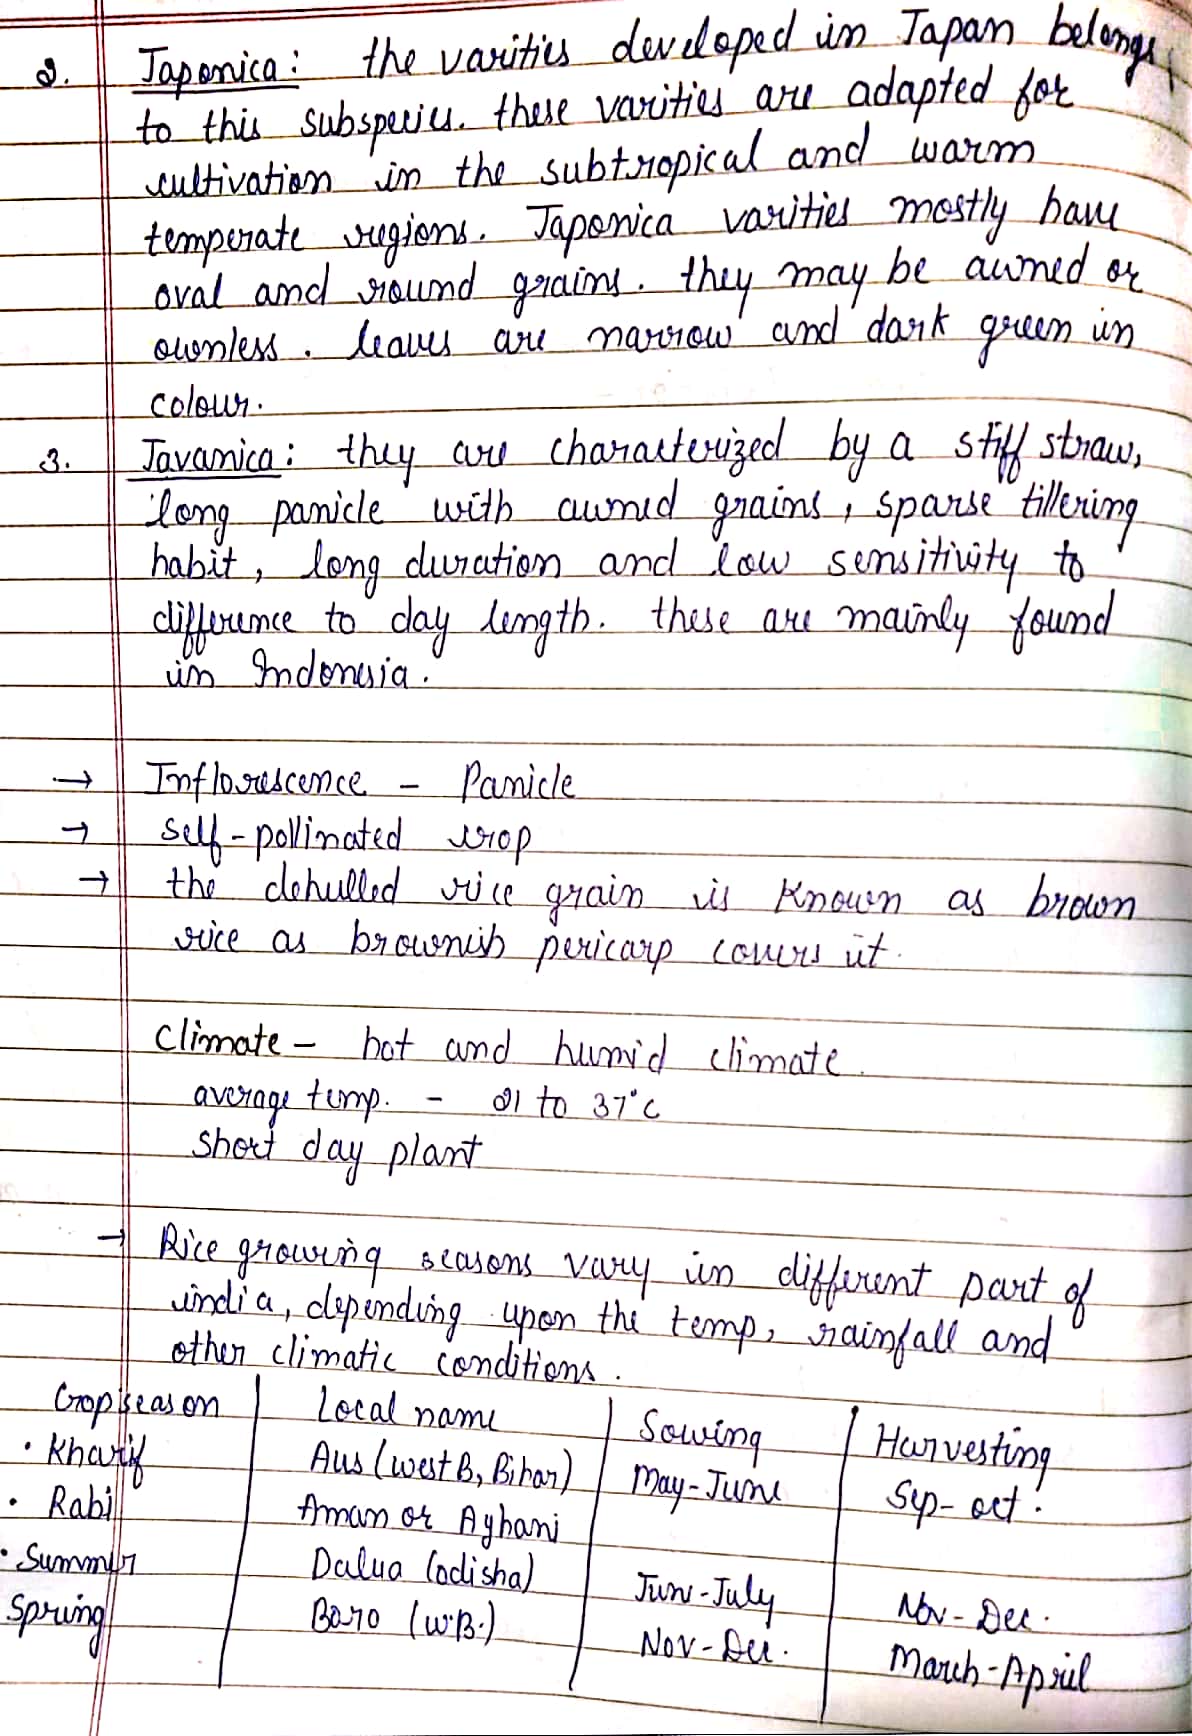 2. Japonica: the varities developed in Japan belongs
to this subspecies. these varities are adapted for
cultivation in the subtropical and warm
temperate regions. Japonica varities mostly have
oval and round grains. they may be awned or
ownless. leaves are narrow and dark green in
colour.
3. Javanica: they are characterized by a stiff straw,
long panicle with awned grains, sparse tillering
habit, long duration and low sensitivity to
difference to day length. these are mainly found
in Indonesia.
→ Inflorescence - Panicle
→ Self-pollinated crop
→ the dehulled rice grain is known as brown
rice as brownish pericarp covers it.
Climate - hot and humid climate.
average temp. - 21 to 37°C
Short day plant
→ Rice growing seasons vary in different part of
india, depending upon the temp, rainfall and
other climatic conditions.
Crop season | Local name | Sowing | Harvesting
• Kharif | Aus (west B, Bihar) | May-June | Sep-oct.
• Rabi | Aman or Aghani
• Summer | Dalua (odisha) | June-July | Nov-Dec.
Spring | Boro (W.B.) | Nov-Dec. | March-April